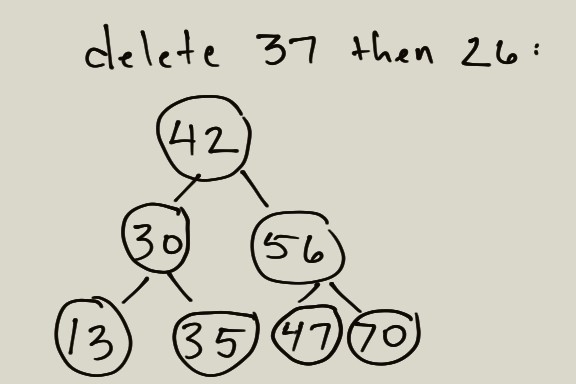 delete 37 then 26:
42
30 56
13 35 47 70